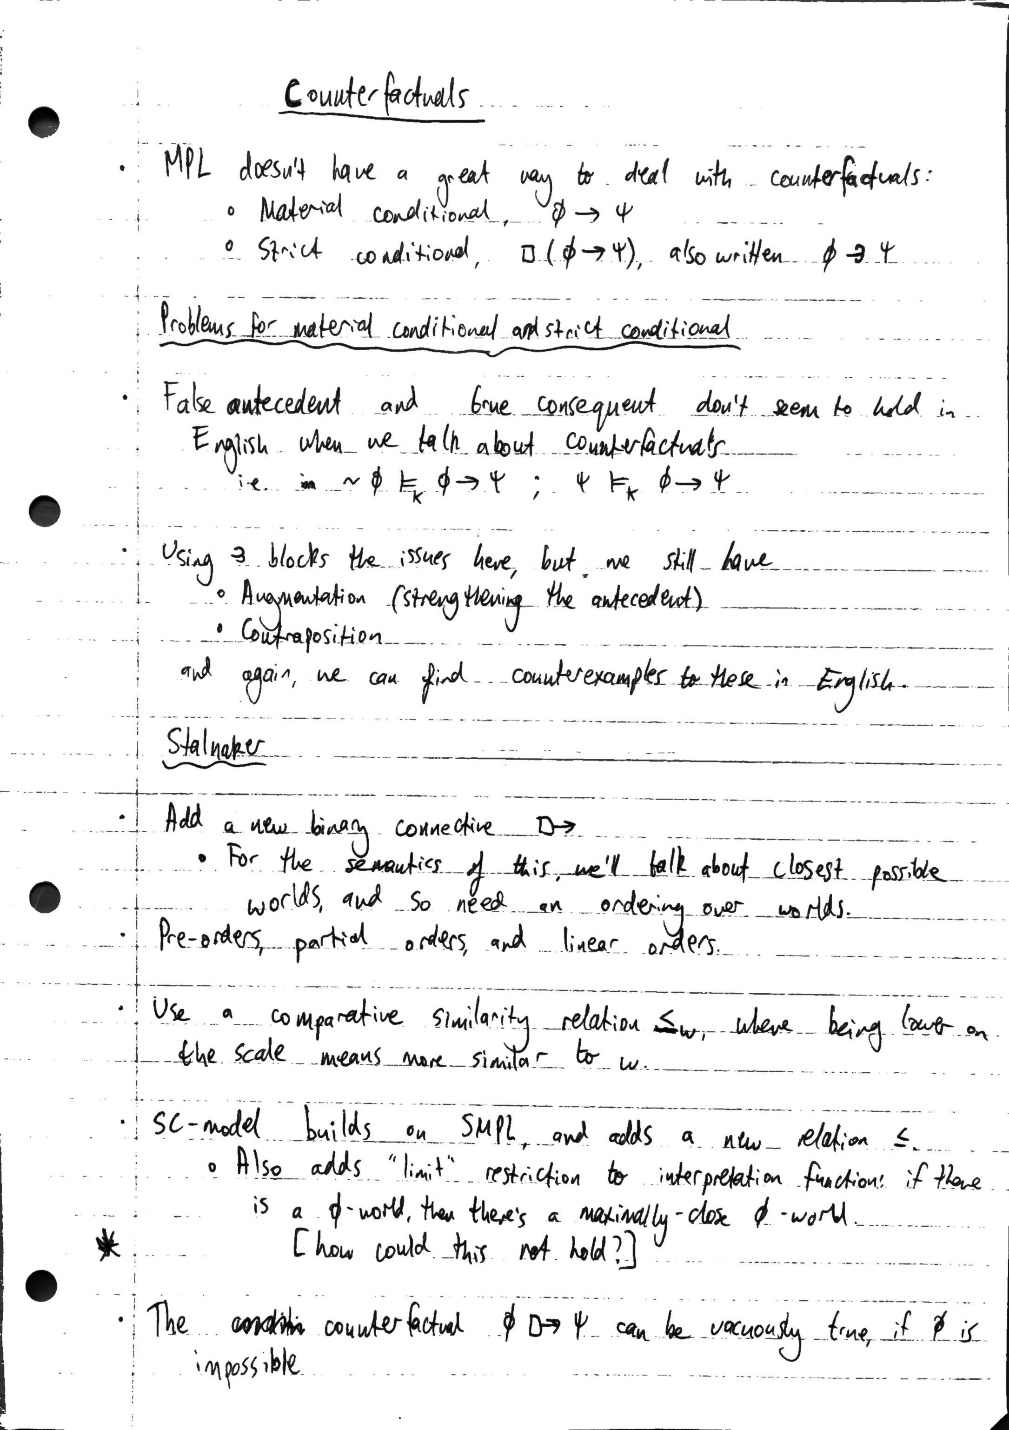 Counterfactuals
· MPL doesn't have a great way to deal with counterfactuals:
◦ Material conditional, ϕ → ψ
◦ Strict conditional, □(ϕ → ψ), also written ϕ ⥽ ψ
Problems for material conditional and strict conditional
· False antecedent and true consequent don't seem to hold in
English when we talk about counterfactuals
i.e. ~ϕ ⊨ₖ ϕ → ψ ; ψ ⊨ₖ ϕ → ψ
· Using ⥽ blocks the issues here, but we still have
◦ Augmentation (strengthening the antecedent)
• Contraposition
and again, we can find counterexamples to these in English.
Stalnaker
· Add a new binary connective □→
• For the semantics of this, we'll talk about closest possible
worlds, and so need an ordering over worlds.
· Pre-orders, partial orders, and linear orders.
· Use a comparative similarity relation ≤w, where being lower on
the scale means more similar to w.
· SC-model builds on SMPL, and adds a new relation ≤.
◦ Also adds "limit" restriction to interpretation function: if there
is a ϕ-world, then there's a maximally-close ϕ-world.
* [how could this not hold?]
· The counterfactual ϕ □→ ψ can be vacuously true, if ϕ is
impossible